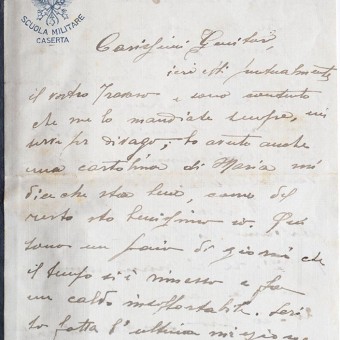 SCUOLA MILITARE
CASERTA
Carissimi Genitori,
puntualmente
il vostro e sono contento
che me lo mandiate sempre, mi
serve per disago; ho avuto anche
una cartolina di Maria mi
dice che sta bene, come del
resto sto benissimo io. Qui
sono un paio di giorni che
il tempo si è rimesso e fa
un caldo insopportabile. Ieri
ho fatta l'ultima